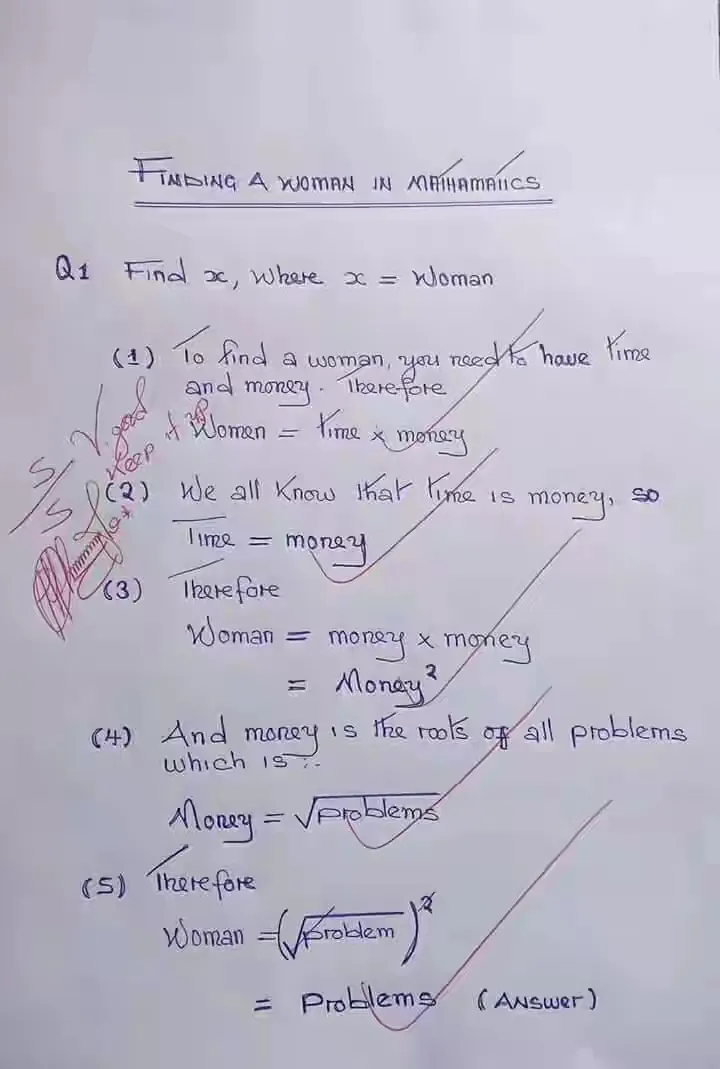 FINDING A WOMAN IN MATHAMATICS
Q1 Find x, where x = Woman
(1) To find a woman, you need to have time
and money. Therefore
Women = time x money
5/5 V. good
Keep it up
(2) We all know that time is money, so
Time = money
(3) Therefore
Woman = money x money
= Money²
(4) And money is the roots of all problems
which is :-
Money = √problems
(5) Therefore
Woman = (√problem)²
= Problems (Answer)